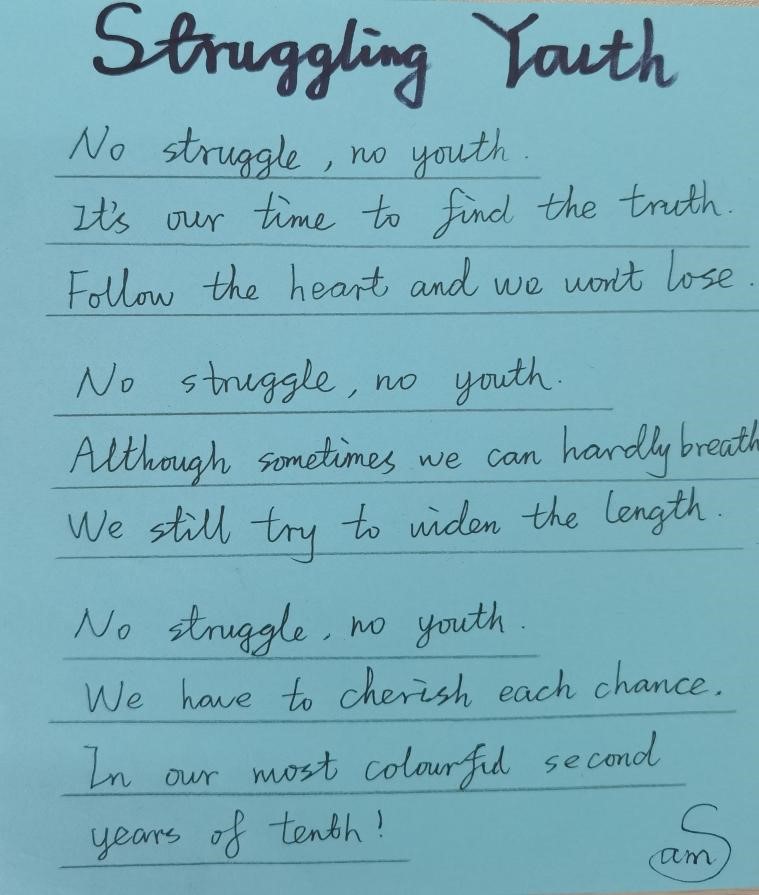 Struggling Youth
No struggle, no youth.
It's our time to find the truth.
Follow the heart and we won't lose.
No struggle, no youth.
Although sometimes we can hardly breath
We still try to widen the length.
No struggle, no youth.
We have to cherish each chance.
In our most colourful second
years of tenth!
Sam